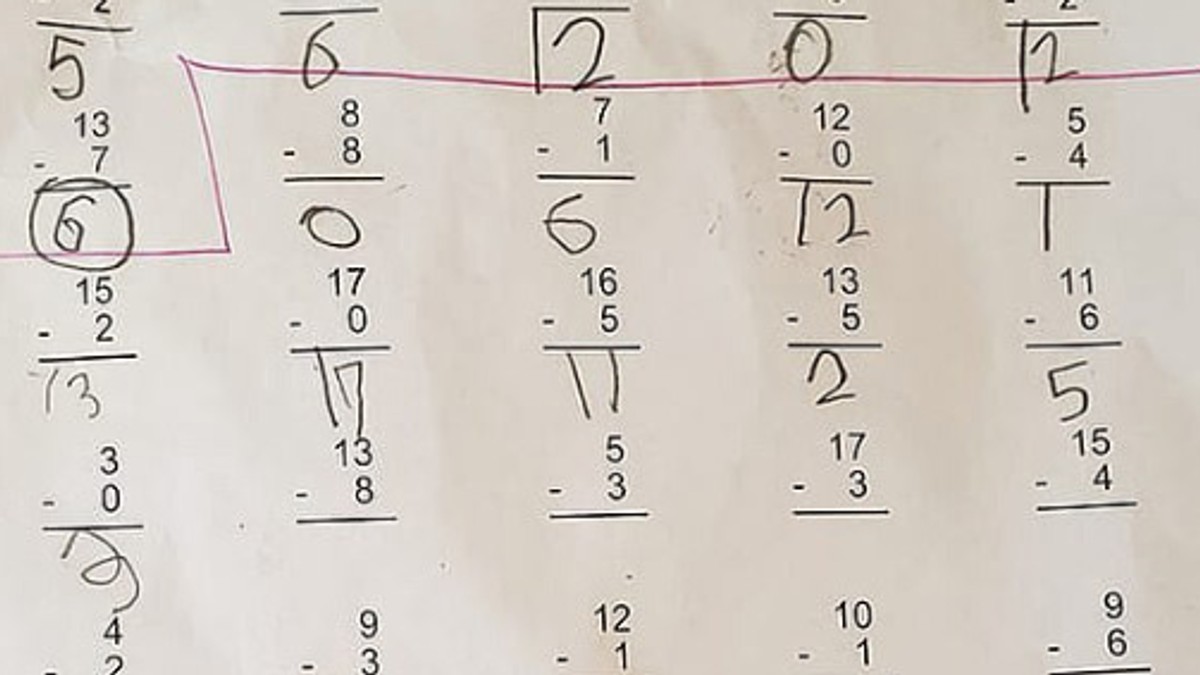 5 6 12 0 12
13 8 7 12 5
- 7 - 8 - 1 - 0 - 4
6 0 6 12 1
15 17 16 13 11
- 2 - 0 - 5 - 5 - 6
13 17 11 2 5
3 13 5 17 15
- 0 - 8 - 3 - 3 - 4
3
4 9 12 10 9
- 2 - 3 - 1 - 1 - 6